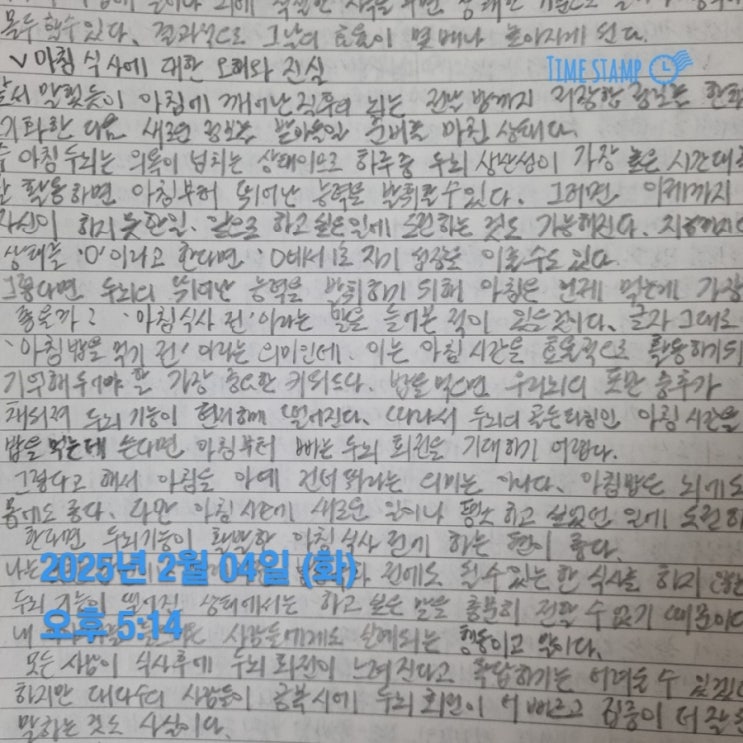 모두 할 수 있다. 결과적으로 그날의 효율이 몇 배나 높아지게 된다.
∨ 아침 식사에 대한 오해와 진실
TIME STAMP
말했듯이 아침에 깨어난 직후의 뇌는 전날 밤까지 저장한 정보를
다음 새로운 정보를 받아들일 준비를 마친 상태다.
아침 두뇌는 의욕이 넘치는 상태이므로 하루 중 두뇌 생산성이 가장 높은 시간대
활용하면 아침부터 뛰어난 능력을 발휘할 수 있다. 그러면 이제까지
자신이 하지 못한 일, 앞으로 하고 싶은 일에 도전하는 것도 가능해진다.
상태를 '0'이라고 한다면 '0에서 1로 자기 성장을 이룰 수도 있다.
그렇다면 두뇌의 뛰어난 능력을 발휘하기 위해 아침은 언제 먹는게 가장
좋을까? '아침 식사 전'이라는 말을 들어본 적이 있을 것이다. 글자 그대로
'아침밥을 먹기 전'이라는 의미인데, 이는 아침 시간을 효율적으로 활용하기 위
기억해 두어야 할 가장 중요한 키워드다. 밥을 먹으면 우리 뇌의 포만 중추가
채워져 두뇌 기능이 현저하게 떨어진다. 따라서 두뇌의 골든타임인 아침 시간을
밥을 먹는데 쓴다면 아침부터 빠른 두뇌 회전을 기대하기 어렵다.
그렇다고 해서 아침을 아예 건너뛰라는 의미는 아니다. 아침밥은 뇌에도
몸에도 좋다. 다만 아침 시간에 새로운 일이나 평소 하고 싶었던 일에 도전
한다면 두뇌 기능이 활발한 아침 식사 전에 하는 편이 좋다.
나는 2025년 2월 04일 (화) 전에도 될 수 있는 한 식사를 하지
두뇌 기능이 떨어진 상태에서는 하고 싶은 말을 충분히 전할 수 없기 때문이다
내 오후 5:14 사람들에게도 실례되는 행동이고 말이다.
모든 사람이 식사 후에 두뇌 회전이 느려진다고 속단하기는 어려울 수 있겠
하지만 대다수의 사람들이 공복 시에 두뇌 회전이 더 빠르고 집중이 더 잘
말하는 것도 사실이다.